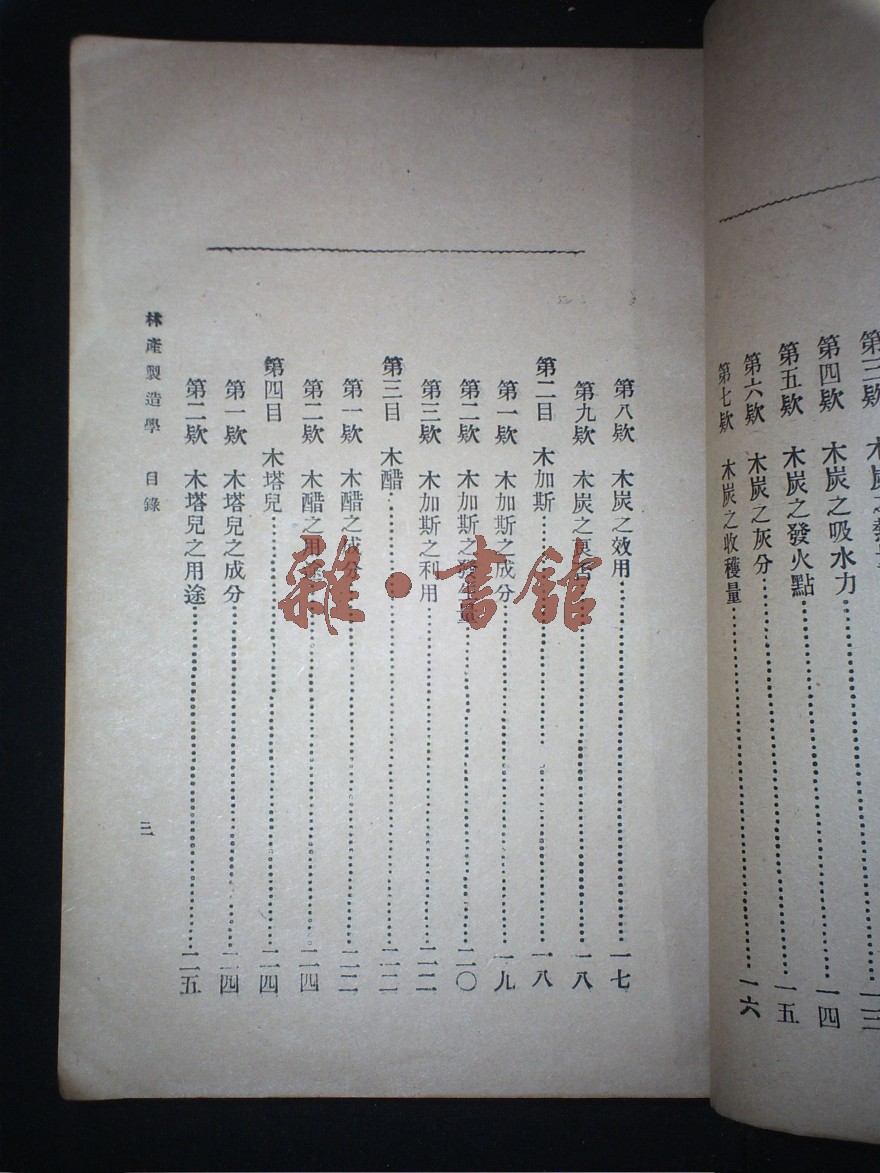 第三欵
第四欵 木炭之吸水力……一四
第五欵 木炭之發火點……一五
第六欵 木炭之灰分……
第七欵 木炭之收穫量……一六
第八欵 木炭之效用……一七
第九欵 木炭之良否……一八
第二目 木加斯……一八
第一欵 木加斯之成分……一九
第二欵 木加斯之發生量……二〇
第三欵 木加斯之利用……二二
第三目 木醋……二二
第一欵 木醋之成分……二二
第二欵 木醋之用途……二四
第四目 木塔兒……二四
第一欵 木塔兒之成分……二四
第二欵 木塔兒之用途……二五
林產製造學 目錄
三
雜·書舘